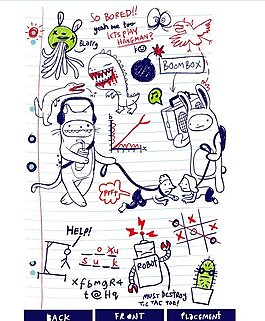 SO BORED!!
yeah me too
LETS PLAY
HANGMAN?
BLArrg
BOOMBOX
x
YPIFF
HELP!
O Xu
S u _ k
xfbmgR4
t@Hq
ROBOT
MUST DESTROY
TIC TAC TOE!
BACK
FRONT
PLACEMENT